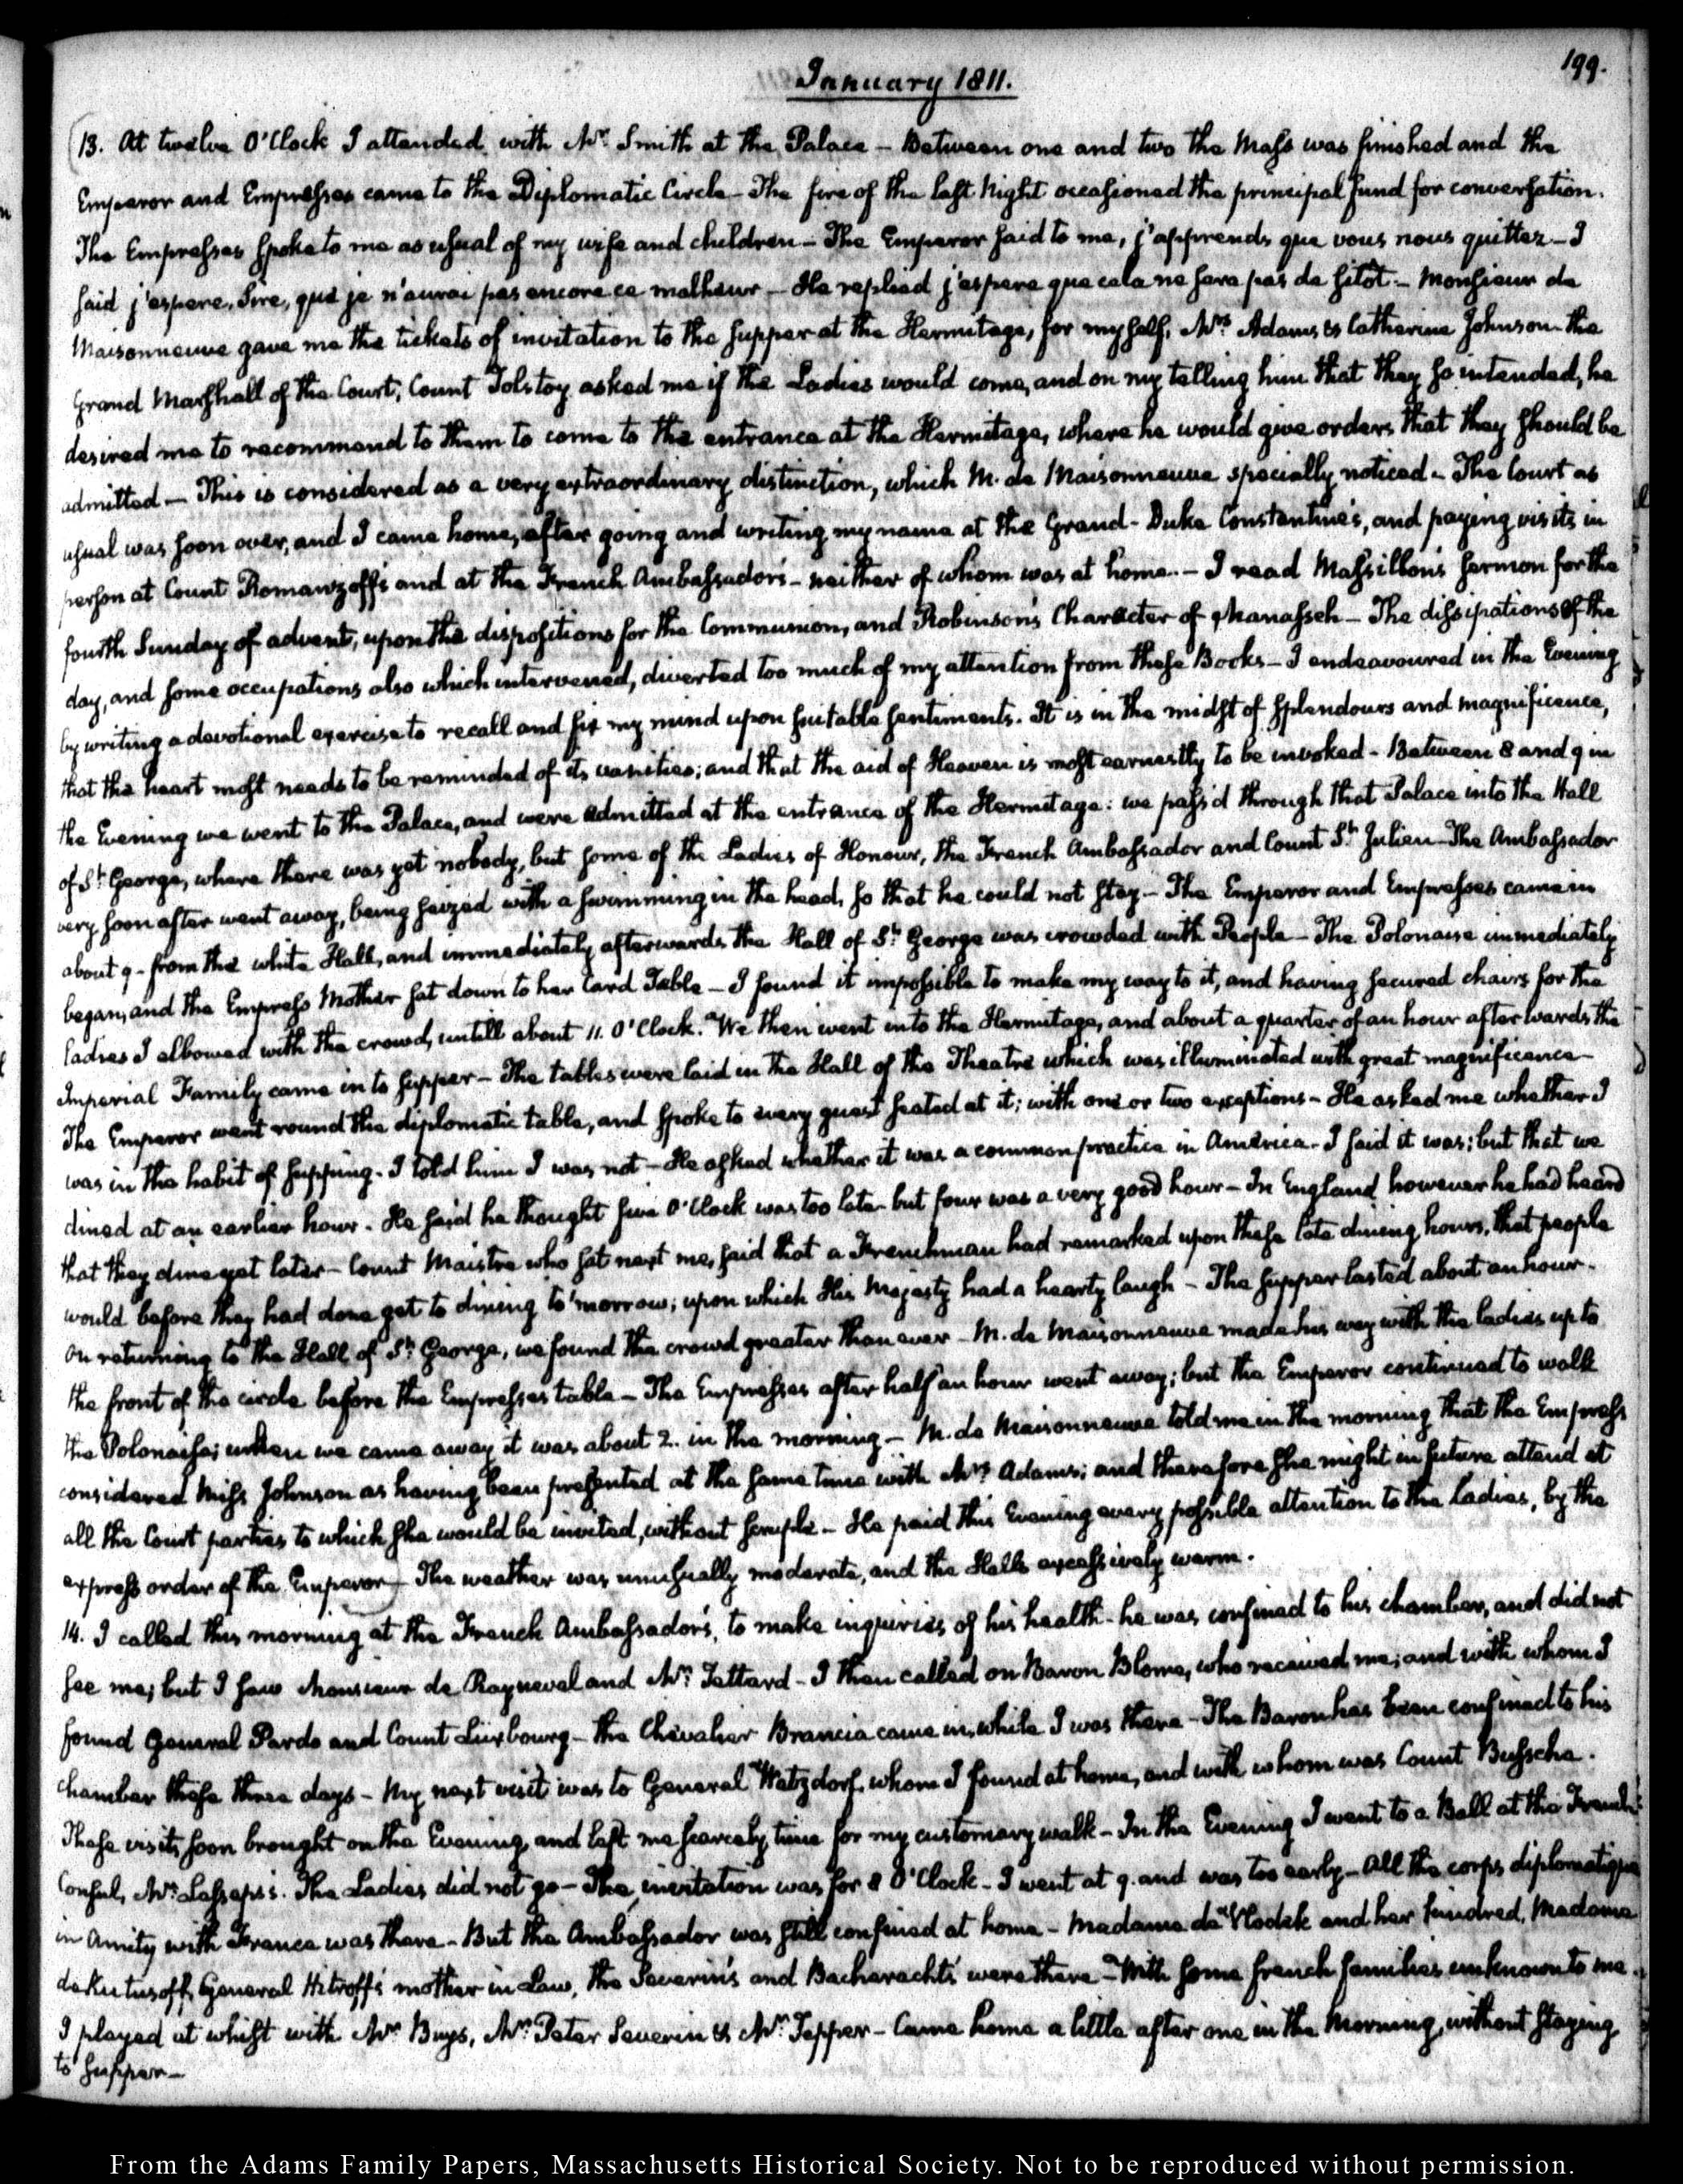 199.
January 1811.
13. At twelve O'Clock I attended with Mr: Smith at the Palace — Between one and two the Mass was finished and the
Emperor and Empresses came to the Diplomatic Circle — The fire of the last Night occasioned the principal fund for conversation.
The Empresses spoke to me as usual of my wife and children — The Emperor said to me, j'apprends que vous nous quittez — I
said j'espere, Sire, que je n'aurai pas encore ce malheur — He replied j'espere que cela ne sera pas de sitôt. — Monsieur de
Maisonneuve gave me the tickets of invitation to the supper at the Hermitage, for myself, Mrs: Adams & Catherine Johnson — the
Grand Marshall of the Court, Count Tolstoy asked me if the Ladies would come, and on my telling him that they so intended, he
desired me to recommend to them to come to the entrance at the Hermitage, where he would give orders that they should be
admitted — This is considered as a very extraordinary distinction, which M. de Maisonneuve specially noticed — The Court as
usual was soon over, and I came home, after going and writing my name at the Grand-Duke Constantine's, and paying visits in
person at Count Romanzoff's and at the French Ambassador's — neither of whom was at home. — I read Massillon's sermon for the
fourth Sunday of advent, upon the dispositions for the Communion, and Robinson's Character of Manasseh — The dissipations of the
day, and some occupations also which intervened, diverted too much of my attention from these Books — I endeavoured in the Evening
by writing a devotional exercise to recall and fix my mind upon suitable sentiments. It is in the midst of splendours and magnificence,
that the heart most needs to be reminded of its vanities; and that the aid of Heaven is most earnestly to be invoked — Between 8 and 9 in
the Evening we went to the Palace, and were admitted at the entrance of the Hermitage: we pass'd through that Palace into the Hall
of St: George, where there was yet nobody, but some of the Ladies of Honour, the French Ambassador and Count St: Julien — The Ambassador
very soon after went away, being seized with a swimming in the head, so that he could not stay — The Emperor and Empresses came in
about 9 — from the white Hall, and immediately afterwards the Hall of St: George was crowded with People — The Polonaise immediately
began, and the Empress Mother sat down to her Card Table — I found it impossible to make my way to it, and having secured chairs for the
ladies I elbowed with the crowd, untill about 11. O'Clock. We then went into the Hermitage, and about a quarter of an hour afterwards the
Imperial Family came in to supper — The tables were laid in the Hall of the Theatre which was illuminated with great magnificence —
The Emperor went round the diplomatic table, and spoke to every guest seated at it; with one or two exceptions — He asked me whether I
was in the habit of supping — I told him I was not — He asked whether it was a common practice in America — I said it was; but that we
dined at an earlier hour — He said he thought five O'Clock was too late — but four was a very good hour — In England however he had heard
that they dine yet later — Count Maistre who sat next me, said that a Frenchman had remarked upon these late dining hours, that people
would before they had done get to dining to'morrow; upon which His Majesty had a hearty laugh — The supper lasted about an hour —
On returning to the Hall of St: George, we found the crowd greater than ever — M. de Maisonneuve made his way with the ladies up to
the front of the circle before the Empresses table — The Empresses after half an hour went away; but the Emperor continued to walk
the Polonaise; when we came away it was about 2. in the morning — M. de Maisonneuve told me in the morning that the Empress
considered Miss Johnson as having been presented at the same time with Mrs: Adams; and therefore she might in future attend at
all the Court parties to which she would be invited, without scruple — He paid this Evening every possible attention to the Ladies, by the
express order of the Emperor — The weather was unusually moderate, and the Halls excessively warm.
14. I called this morning at the French Ambassador's, to make inquiries of his health — he was confined to his chamber, and did not
see me; but I saw Monsieur de Rayneval and Mr: Tattard — I then called on Baron Blome, who received me; and with whom I
found General Pardo and Count Luxbourg — the Chevalier Brancia came in, while I was there — The Baron has been confined to his
chamber these three days — My next visit was to General Watzdorf, whom I found at home, and with whom was Count Bussche.
These visits soon brought on the Evening, and left me scarcely time for my customary walk — In the Evening I went to a Ball at the French
Consul, Mr: Lesseps's. The Ladies did not go — The invitation was for 8 O'Clock — I went at 9. and was too early — All the corps diplomatique
in Amity with France was there — But the Ambassador was still confined at home — Madame de Vlodek and her kindred, Madame
de Kutusoff, General Hitroff's mother in Law, the Severin's and Bacherachts were there — With some french families unknown to me.
I played at whist with Mr: Buys, Mr: Peter Severin & Mr: Tepper — Came home a little after one in the Morning, without staying
to supper —
From the Adams Family Papers, Massachusetts Historical Society. Not to be reproduced without permission.